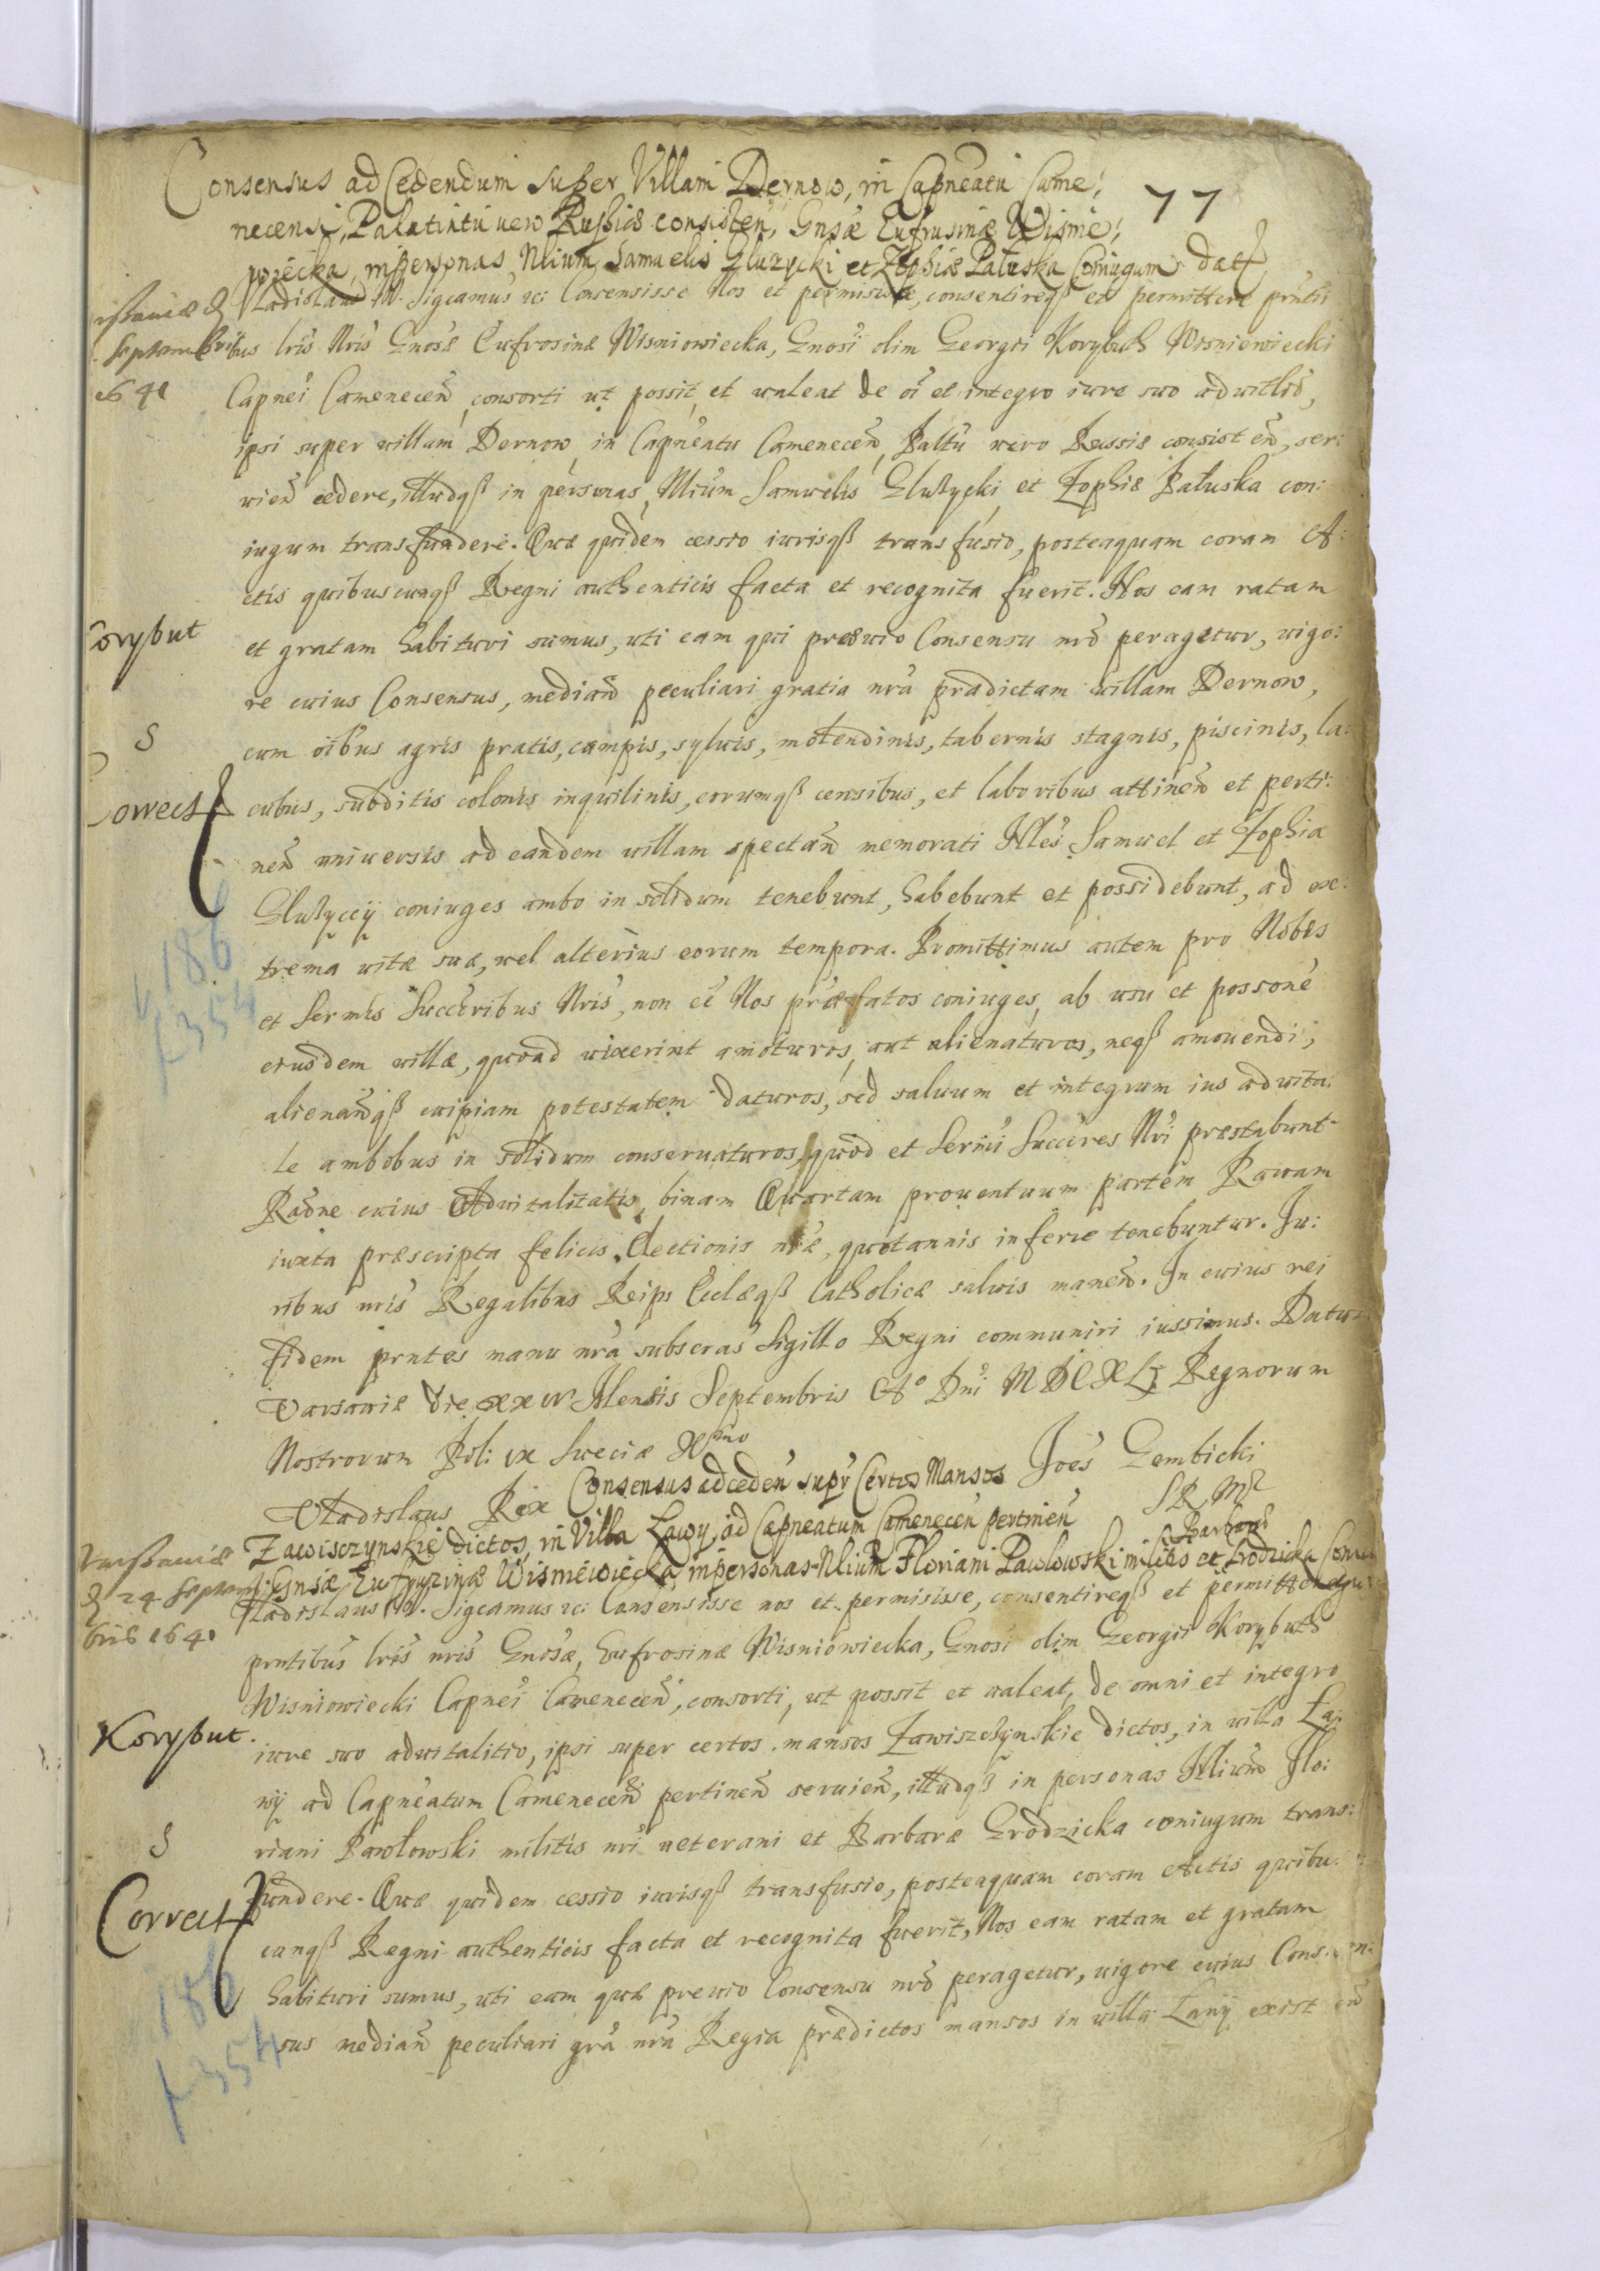 Consensus ad Cedendum super Villam Dernow, in Capneatu Came:
77
necensi, Palatintu vero Russiæ consisten, Gnsæ Eufrusinæ Wisnie:
wiecka, in personas Nlium Samuelis Gluzycki et Zophiæ Pałuska Coniugum dat
Vladislaus IV. Sigcamus &c: Consensisse Nos et permisisse, consentireqß et permittere pñtib
Septembris
bus lris Nris Gnosæ Eufrosinæ Wisniowiecka, Gnosi olim Georgii Korybuth Wisniowiecki
1641
Capnei Camenecen, consorti ut possit, et valeat de oi et integro iure suo advitlio,
ipsi super villam Dernow in Capneatu Camenecen, Paltu vero Russiæ consisten, ser:
vien cedere, illudqß in personas Nlium Samuelis Gluzycki et Zophiæ Pałuska con:
iugum transfundere. Quæ quidem cessio iurisqß transfusio, posteaquam coram A:
ctis quibuscunqß Regni authenticis facta et recognita fuerit. Nos eam ratam
Corybut
et gratam habituri sumus, uti eam qui prævio Consensu nro peragetur, vigo:
re cuius Consensus, median peculiari gratia nra prædictam villam Dernow,
S
cum oibus agris pratis, campis, sylvis, molendinis, tabernis stagnis, piscinis, la:
Correct
cubus, subditis colonis inquilinis, eorumqß censibus, et laboribus attinen et perti:
nen universis ad eandem villam spectan memorati Nles Samuel et Zophia
Gluzyccÿ coniuges ambo in solidum tenebunt, habebunt et possidebunt, ad ex:
186
trema vitæ suæ, vel alterius eorum tempora. Promittimus autem pro Nobis
f 354
et Sermis Succribus Nris, non ee Nos præfatos coniuges, ab usu et possone
eiusdem villæ, quoad vixerint amoturos, aut alienaturos, neqß amovendi,
alienandiqß cuipiam potestatem daturos, sed salvum et integrum ius advita:
le ambobus in solidum conservaturos, quod et Sermi Succres Nri præstabunt.
Raone cuius Advitalitatis, binam Quartam proventuum partem Ravam
iuxta præscripta felicis Electionis nræ, quotannis inferre tenebuntur. Iu:
ribus nris Regalibus Reip Ecclæqß Catholicæ salvis manen. In cuius rei
fidem pntes manu nra subscras Sigillo Regni communiri iussimus. Datum
Varsaviæ die xxiv Mensis Septembris Aº Dni MDCXLI Regnorum
Nostrorum Pol: ix Sueciæ Xmo
Vladislaus Rex
Joes Gembicki
Consensus adceden supr Certos Mansos
Zawisczynskie dictos, in Villa Lawy, ad Capneatum Camenecen pertinen
Varsaviæ
Gnsæ Eufruzinæ Wisniewiecka, in personas Nlium Floriani Pawlowski militis et Barbara Grodzicka Coniu
24 Septem
bris 1641
Vladislaus IV. Sigcamus &c: Consensisse nos et permisisse, consentireqß et permittere
pntibus lris nris Gnosæ, Eufrosinæ Wisniowiecka, Gnosi olim Georgii Korybuth
Wisniowiecki Capnei Camenecen, consorti, ut possit et valeat, de omni et integro
Korybut
iure suo advitalitio, ipsi super certos mansos Zawiszczynskie dictos, in villa Ła:
wÿ ad Capneatum Camenecen pertinen servien, illudqß in personas Nlium Flo:
S
riani Pawłowski militis nri veterani et Barbaræ Grodzicka coniugum trans:
Correct
fundere. Quæ quidem cessio iurisqß transfusio, posteaquam coram Actis quibus
cunqß Regni authenticis facta et recognita fuerit, Nos eam ratam et gratam
186
habituri sumus, uti eam quæ prævio Consensu nro peragetur, vigore cuius Consen:
f 354
sus median peculiari gra nra Regia prædictos mansos in villa Ławÿ existen